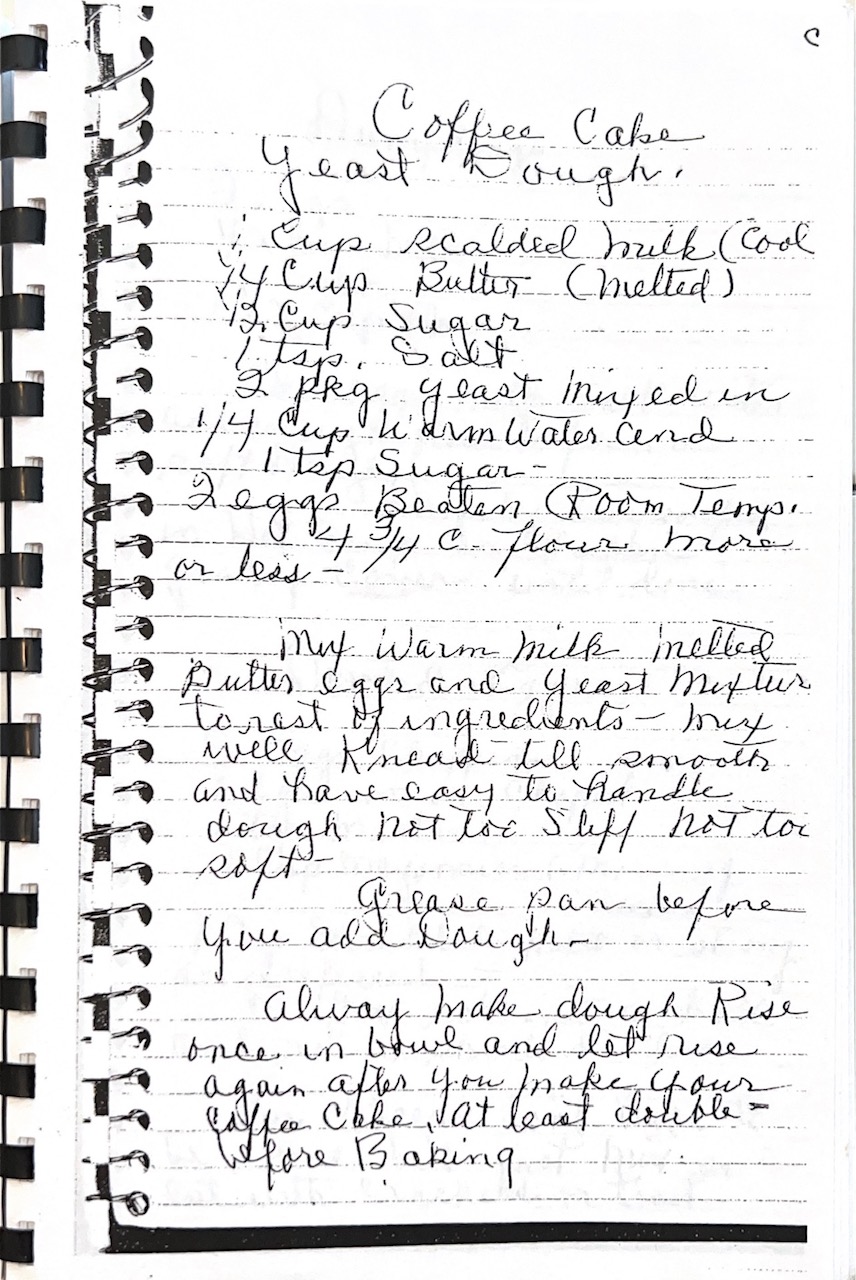 C
Coffee Cake
Yeast Dough.
1 Cup scalded milk (Cool
1/4 Cup Butter (melted)
1/2 Cup Sugar
1 tsp. Salt
2 pkg yeast mixed in
1/4 Cup Warm Water and
1 tsp Sugar -
2 eggs Beaten (Room Temp.
4 3/4 C. flour more
or less -
Mix Warm milk melted
Butter eggs and yeast mixtur
to rest of ingredients - mix
well Knead till smooth
and have easy to handle
dough not too Stiff not too
soft -
Grease pan before
You add Dough -
Alway make dough Rise
once in bowl and let rise
again after you make your
Coffee Cake, at least double -
before Baking